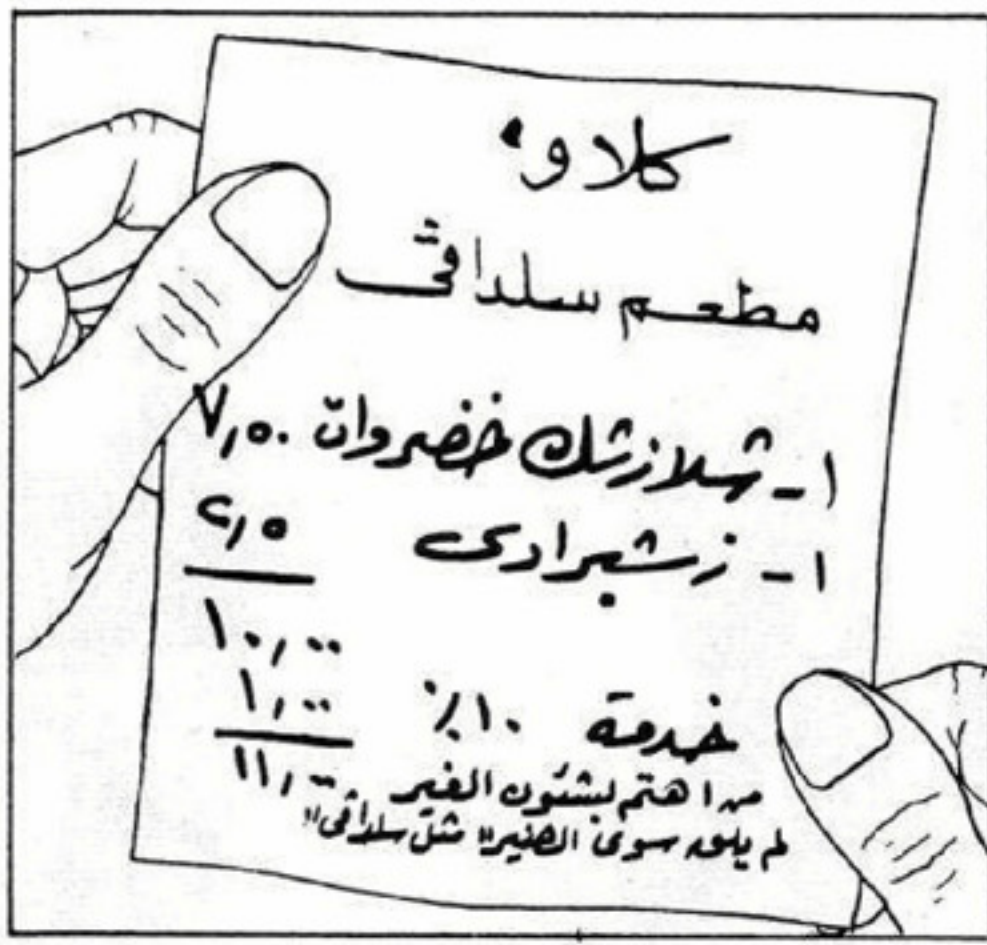 كلاو،
مطعم سلدافى
١- شلازشك خضروات ٧,٥٠
١- زشبرادى ٢,٥
١٠,٠٠
خدمة ١٠٪ ١,٠٠
١١,٠٠
من اهتم بشئون الغير
لم يلق سوى الضير" مثل سلدافى"